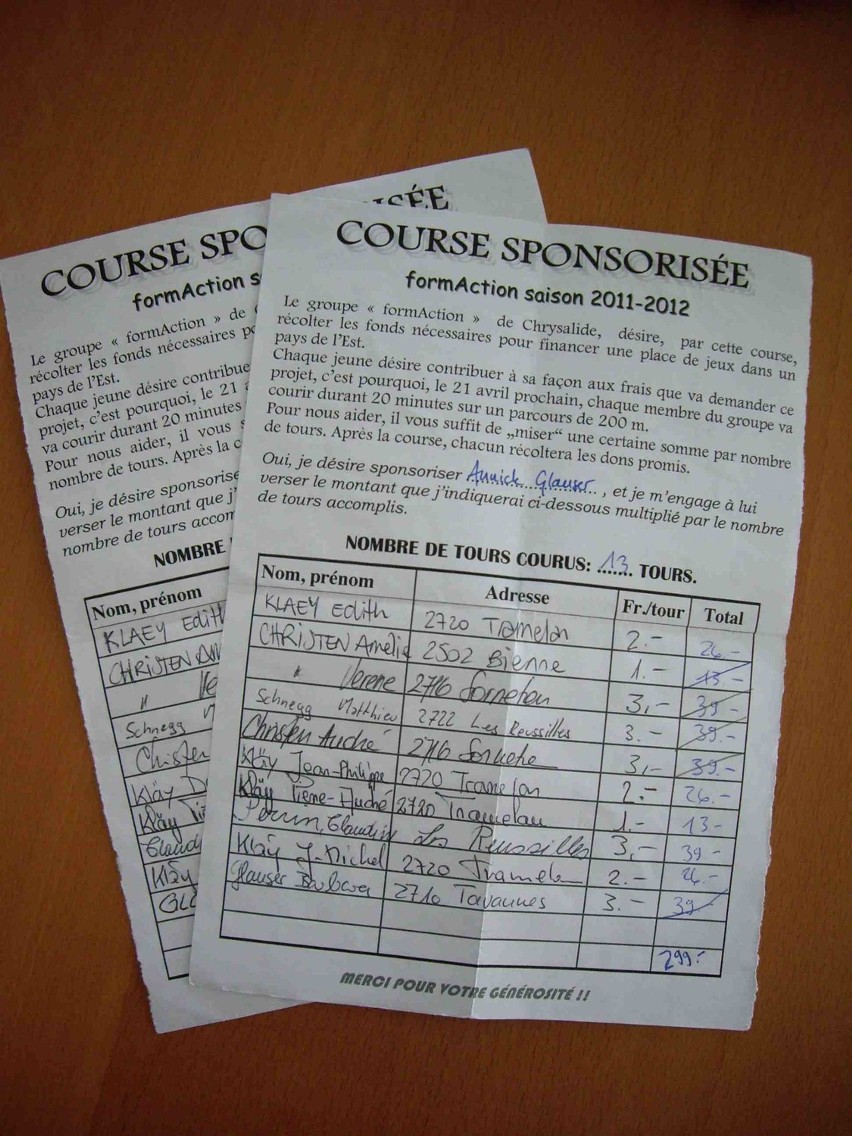 COURSE SPO
ISÉE
formAction s
Le groupe « formAction » de
récolter les fonds nécessaires po
pays de l'Est.
Chaque jeune désire contribue
projet, c'est pourquoi, le 21
va courir durant 20 minutes
Pour nous aider, il vous s
nombre de tours. Après la c
Oui, je désire sponsorise
verser le montant que j'
nombre de tours accom
NOMBRE
Nom, prénom
KLAEY Edith
CHRISTEN
"
Schnegg
Christen
Kläy
Kläy
Claud
Kläy
COURSE SPONSORISÉE
formAction saison 2011-2012
Le groupe « formAction » de Chrysalide, désire, par cette course,
récolter les fonds nécessaires pour financer une place de jeux dans un
pays de l'Est.
Chaque jeune désire contribuer à sa façon aux frais que va demander ce
projet, c'est pourquoi, le 21 avril prochain, chaque membre du groupe va
courir durant 20 minutes sur un parcours de 200 m.
Pour nous aider, il vous suffit de „miser“ une certaine somme par nombre
de tours. Après la course, chacun récoltera les dons promis.
Oui, je désire sponsoriser Annick Glauser, et je m'engage à lui
verser le montant que j'indiquerai ci-dessous multiplié par le nombre
de tours accomplis.
NOMBRE DE TOURS COURUS: 13 TOURS.
Nom, prénom Adresse Fr./tour Total
KLAEY Edith 2720 Tramelan 2.- 26.-
CHRISTEN Amélie 2502 Bienne 1.- 13.-
" Verene 2716 Sornetan 3,- 39.-
Schnegg Matthieu 2722 Les Reussilles 3.- 39.-
Christen André 2716 Sornetan 3,- 39.-
Kläy Jean-Philippe 2720 Tramelan 2.- 26.-
Kläy Pierre-André 2720 Tramelan 1.- 13.-
Perrin, Claudia Les Reussilles 3,- 39.-
Kläy J-Michel 2720 Tramelan 2.- 26.-
Glauser Barbara 2710 Tavannes 3.- 39.-
299.-
MERCI POUR VOTRE GÉNÉROSITÉ !!